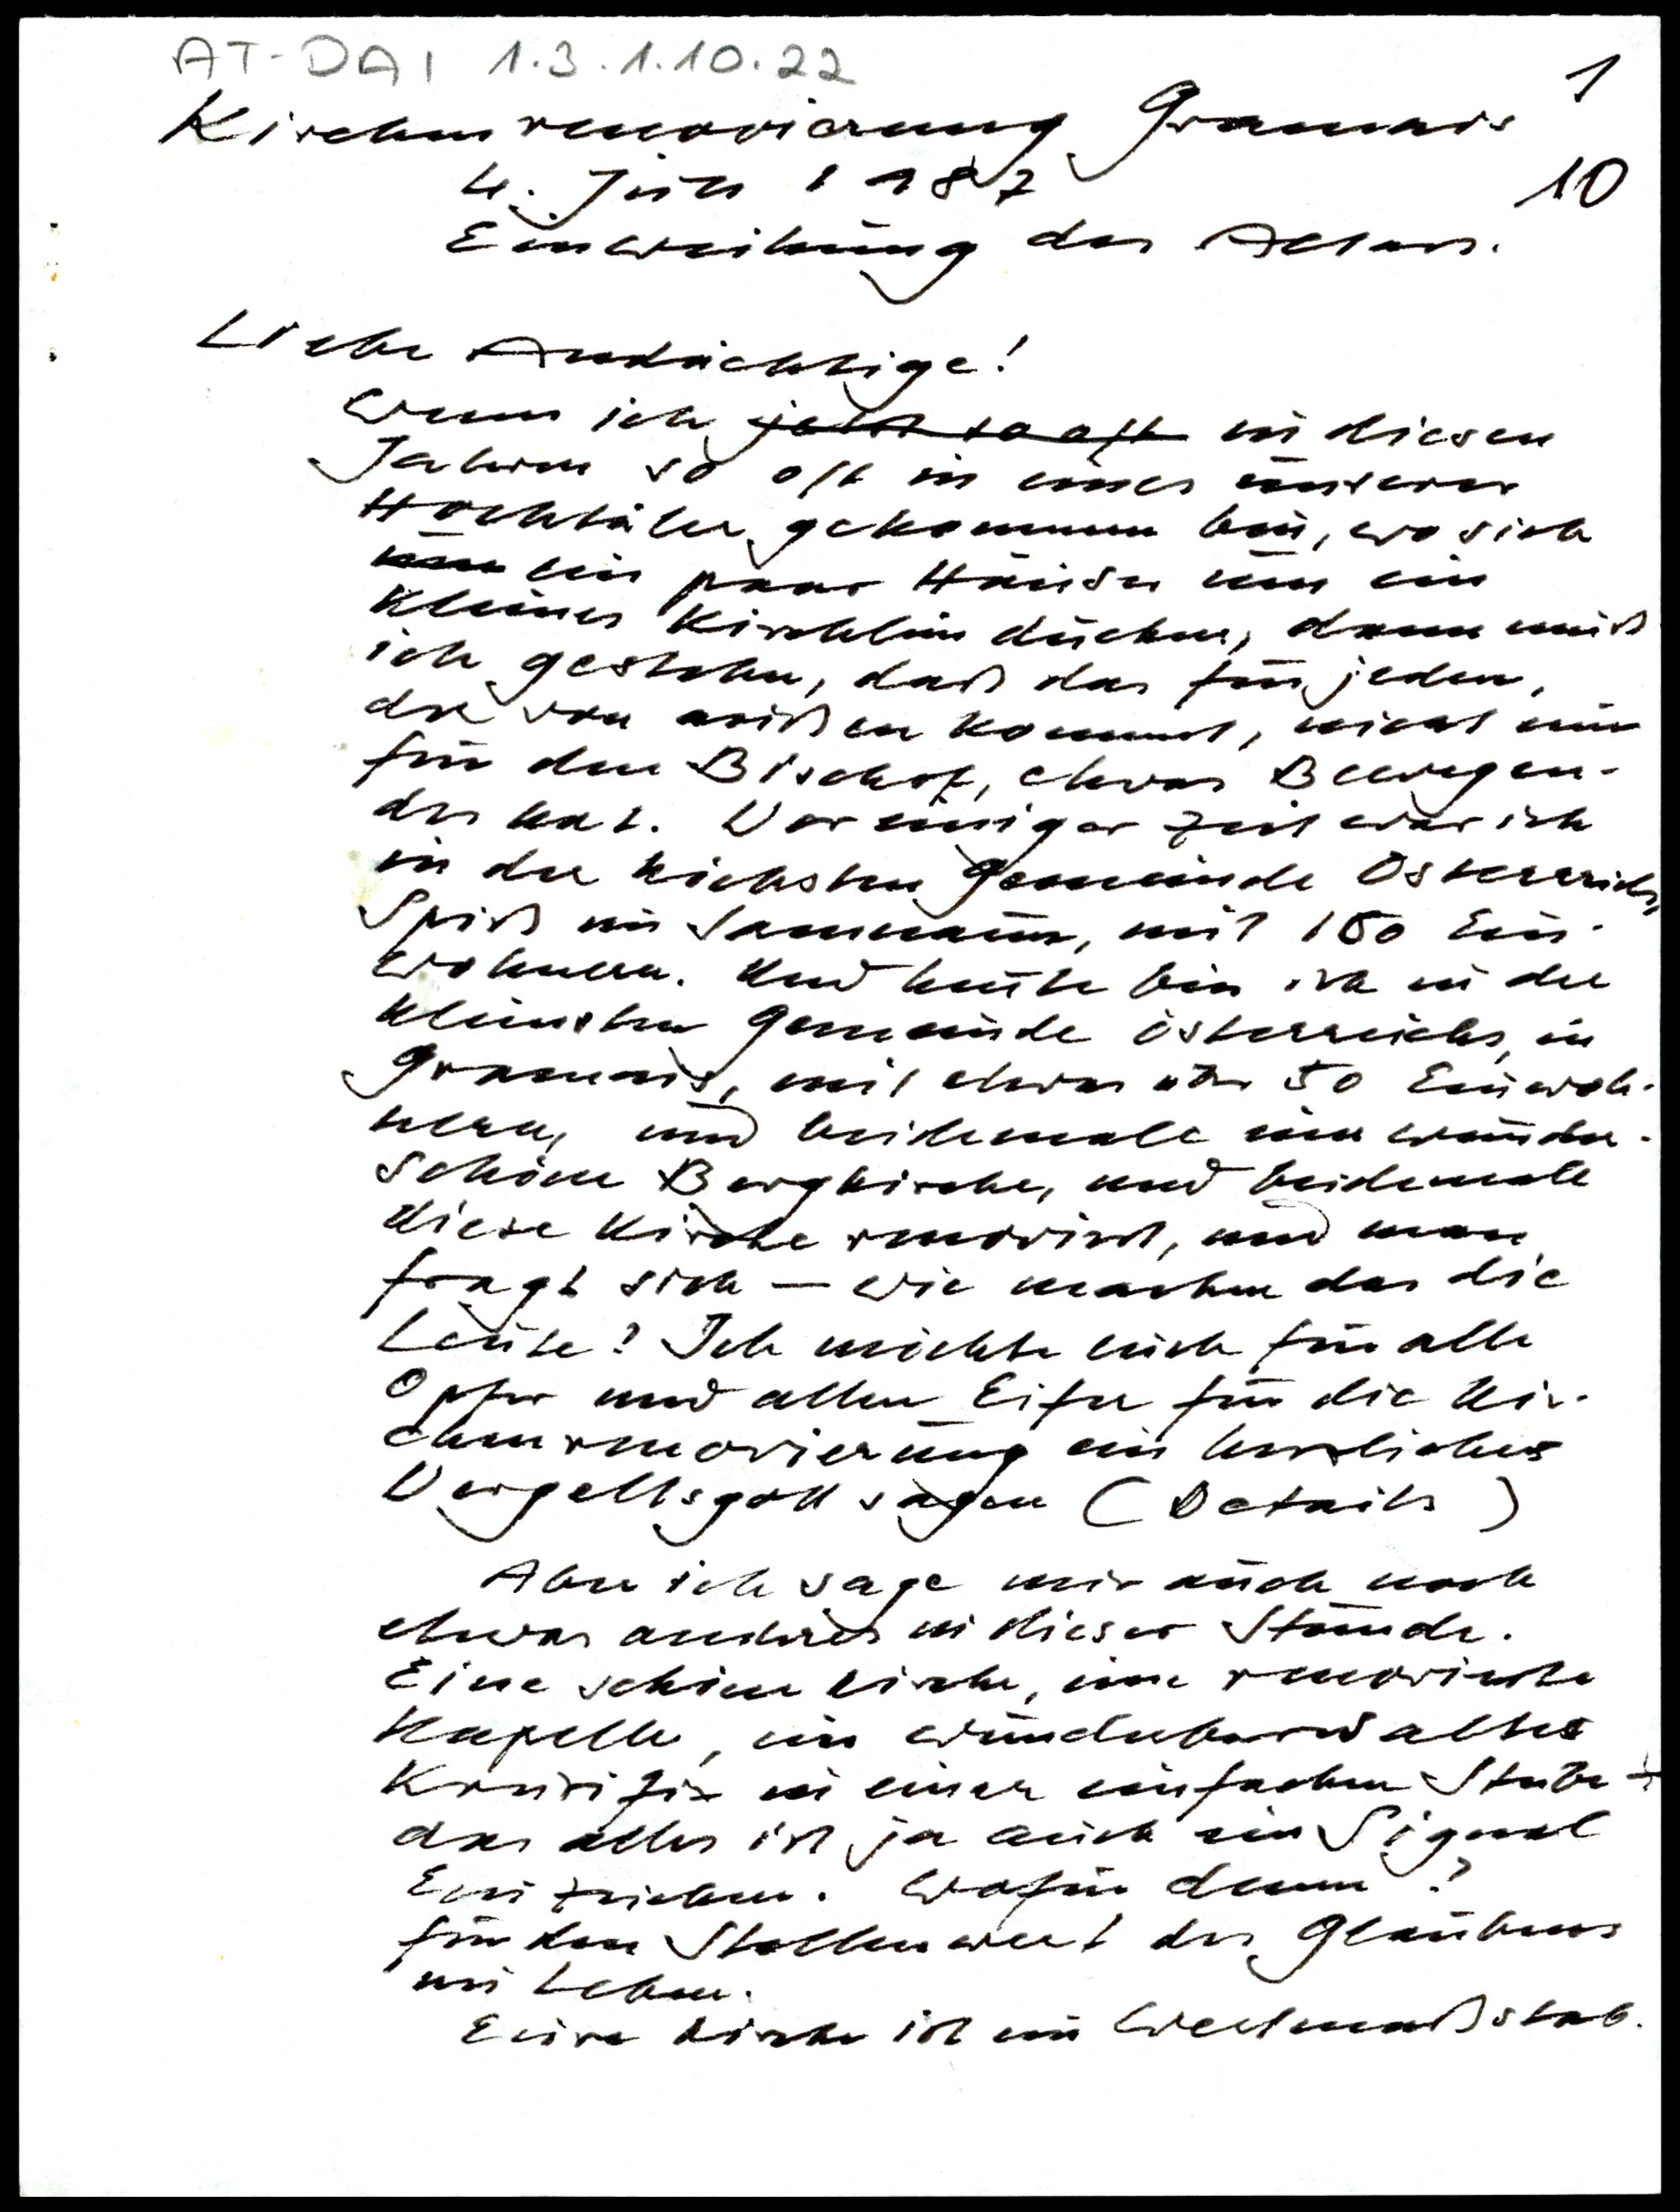 AT-DAI 1.3.1.10.22
1
Kirchenrenovierung Gramais
4. Juli 1987
10
Einweihung des Altars.
Liebe Andächtige!
Wenn ich jetzt so oft in diesen
Jahren so oft in eines unserer
Hochtäler gekommen bin, wo sich
ein paar Häuser um ein
kleines Kirchlein ducken, dann muß
ich gestehn, daß das für jeden,
der von außen kommt, nicht nur
für den Bischof, etwas Bewegen-
des hat. Vor einiger Zeit war ich
in der höchsten Gemeinde Österreichs,
Spiß im Samnaun, mit 150 Ein-
wohnern. Und heute bin ich in der
kleinsten Gemeinde Österreichs, in
Gramais, mit etwas über 50 Einwoh-
nern, und beidemale eine wunder-
schöne Bergkirche, und beidemale
diese Kirche renoviert, und man
fragt sich – wie machen das die
Leute? Ich möchte euch für alle
Opfer und allen Eifer für die Kir-
chenrenovierung ein herzliches
Vergeltsgott sagen (Details)
Aber ich sage mir auch noch
etwas anderes in dieser Stunde.
Eine schöne Kirche, eine renovierte
Kapelle, ein wunderbares altes
Kruzifix in einer einfachen Stube –
das alles ist ja auch ein Signal
Ein Zeichen. Wofür denn?
für den Stellenwert des Glaubens
im Leben.
Eure Kirche ist ein Wertmaßstab.